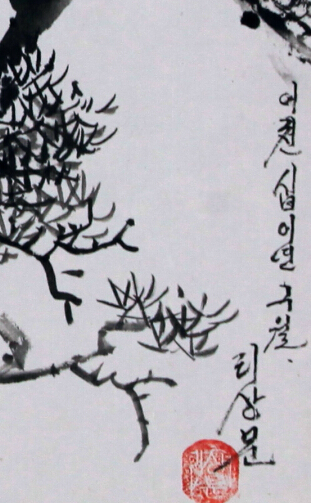 이천 십이연 구월.
리상문